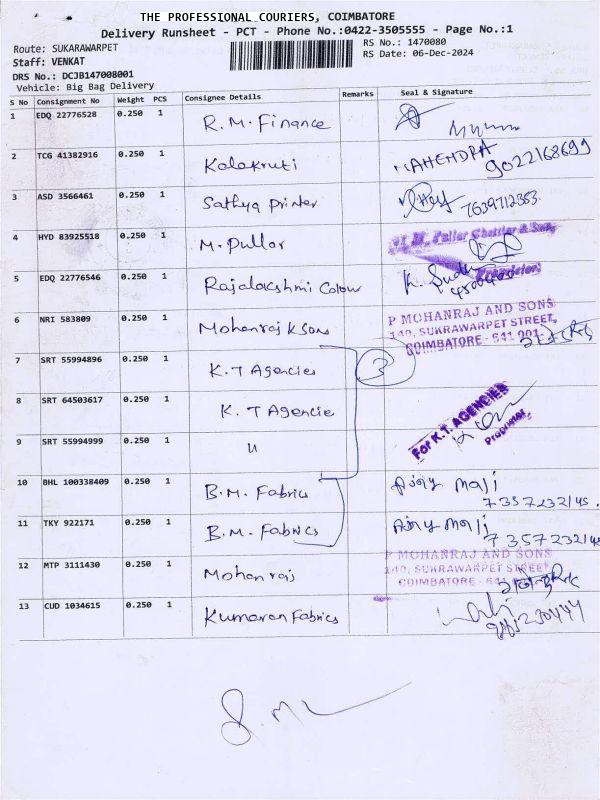 THE PROFESSIONAL COURIERS, COIMBATORE
Delivery Runsheet - PCT - Phone No.:0422-3505555 - Page No.:1
Route: SUKARAWARPET
RS No.: 1470080
Staff: VENKAT
RS Date: 06-Dec-2024
DRS No.: DCJB147008001
Vehicle: Big Bag Delivery
S No Consignment No Weight PCS Consignee Details Remarks Seal & Signature
1 EDQ 22776528 0.250 1 R.M. Finance
2 TCG 41382916 0.250 1 Kalakruti MAHENDRA 9022168699
3 ASD 3566461 0.250 1 Sathya printer
4 HYD 83925518 0.250 1 M. Pullar
5 EDQ 22776546 0.250 1 Rajalakshmi Colour
6 NRI 583809 0.250 1 Mohanraj & Sons P MOHANRAJ AND SONS
140, SUKRAWARPET STREET,
COIMBATORE - 641 001.
7 SRT 55994896 0.250 1 K.T Agencies 3
8 SRT 64503617 0.250 1 K.T Agencie For K.T. AGENCIES
Proprietor
9 SRT 55994999 0.250 1 "
10 BHL 100338409 0.250 1 B.M. Fabric Ajay maji
11 TKY 922171 0.250 1 B.M. Fabrics Ajay maji
12 MTP 3111430 0.250 1 Mohanraj P MOHANRAJ AND SONS
140, SUKRAWARPET STREET
COIMBATORE - 641
13 CUD 1034615 0.250 1 Kumaran Fabrics